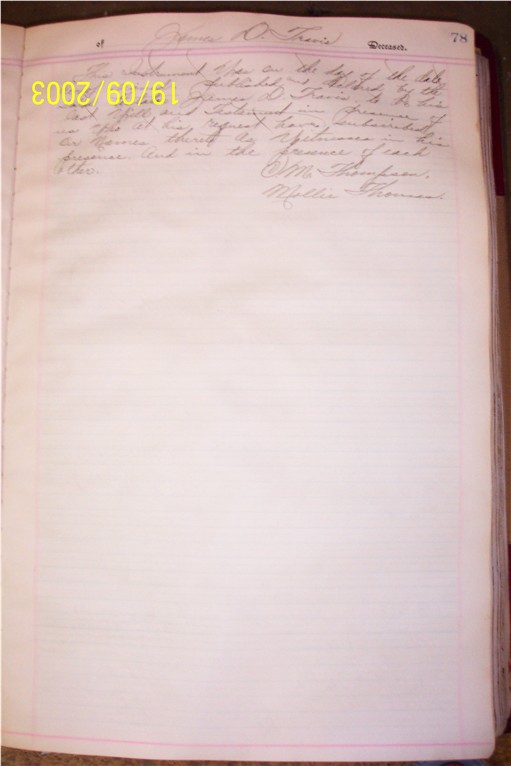 of James D. Travis Deceased. 78
This instrument was on the day of the date
published and declared by the
James D Travis to be his
last Will and Testament in presence of
us who at his request have subscribed
our Names thereto As Witnesses in his
presence. And in the presence of each
other.
C M Thompson.
Mollie Thomson.
19/09/2003